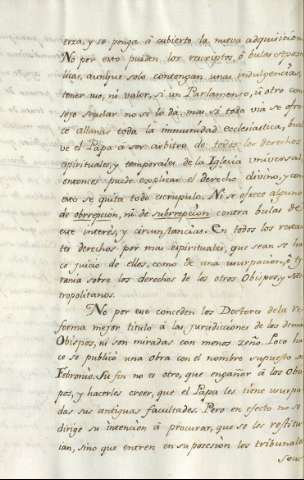 erza, y se ponga á cubierto la nueva adquisicion
No por esto pueden los rescriptos, ó bulas Aposto
licas, aunque solo contengan unas indulgencias,
tener uso, ni valor, si un Parlamento, ú otro con
sejo seglar no se lo dá, mas si toda via se ofre
ce allanar toda la immunidad ecclesiastica, buel
ve el Papa á ser arbitro de todos los derechos
espirituales, y temporales de la Iglesia universal
entonces puede explicar el derecho divino, y con
esto se quita todo escrupulo. Ni se ofrece alguno
de obrepcion, ni de subrrepcion contra bulas de
este interés, y circunstancias. En todos los restan
tes derechos por mas espirituales, que sean se ha
ce juicio de ellos, como de una usurpacion, y ty
rania sobre los derechos de los otros Obispos, y Me
tropolitanos.
No por eso conceden los Doctores de la re
forma mejor titulo á las jurisdiciones de los demas
Obispos, ni son miradas con menos zeño. Poco ha
ce se publicó una obra con el nombre supuesto de
Febronio. Su fin no es otro, que engañar á los Obis
pos, y hacerles creer, que el Papa les tiene usurpa
das sus antiguas facultades. Pero en efecto no se
dirige su intencion á procurar, que se les restitu
ian, sino que entren en su posesión los tribunales